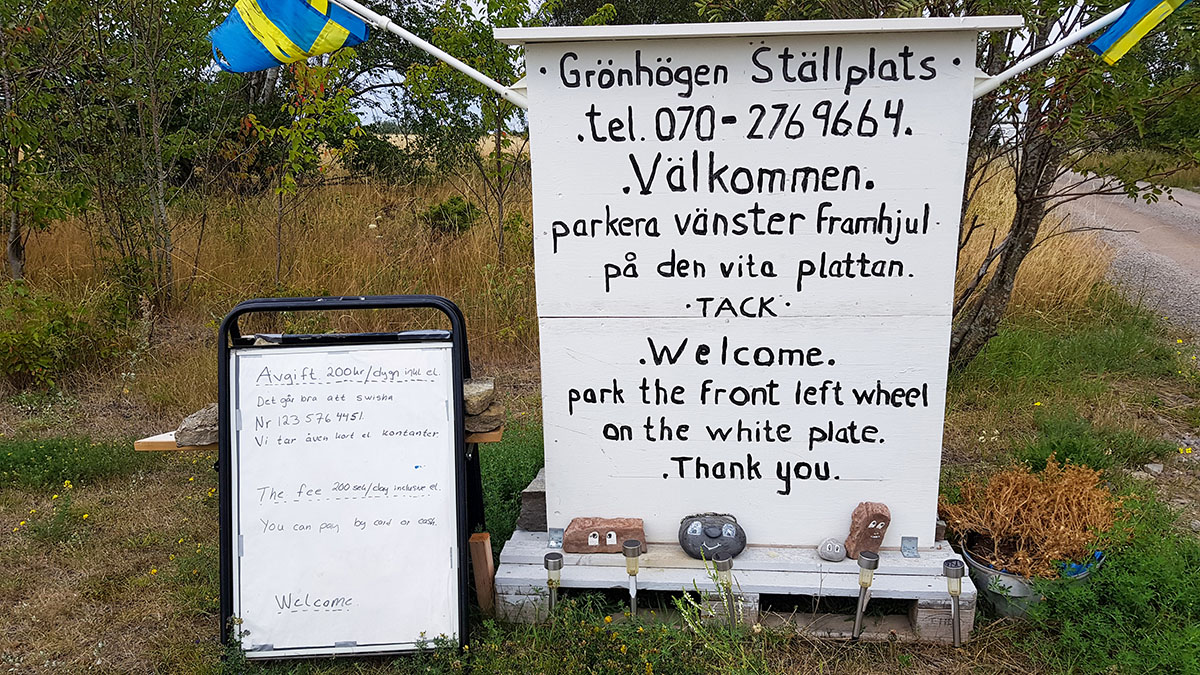 · Grönhögen Ställplats ·
.tel. 070-2769664.
.Välkommen.
parkera vänster framhjul.
på den vita plattan.
· TACK ·
.Welcome.
park the front left wheel
on the white plate.
.Thank you.
Avgift 200kr/dygn inkl el.
Det går bra att swisha
Nr 123 576 4451.
Vi tar även kort el kontanter
The fee 200 sek/day inclusive el.
You can pay by card or cash.
Welcome